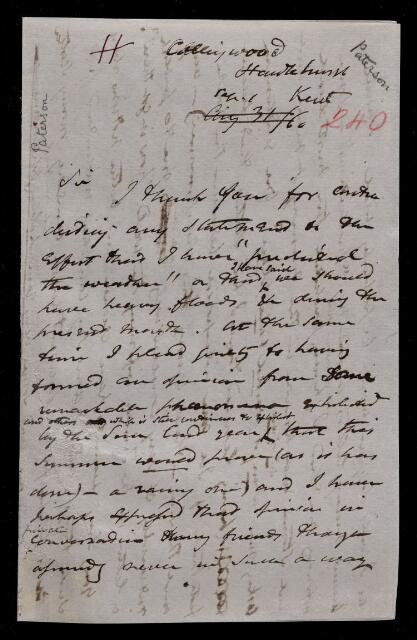 H Collingwood
Paterson
Hawkhurst
Paterson
Sep. 1 Kent
Aug 31/60
240
Sir I thank you for contra
dicting any statement to the
effect that I have "predicted
the weather" or that I have said we should
have heavy floods &c during the
present month. At the same
time I plead guilty to having
formed an opinion from some
remarkable phenomena exhibited
and others which it still continues to exhibit
by the Sun last year that this
Summer would prove (as it has
done) – a rainy one) and I have
perhaps expressed that opinion in
private
conversation among friends though
assuredly never in such a way